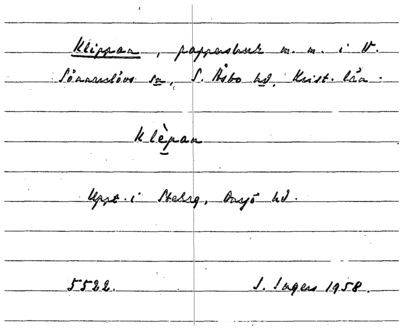 Klippan, pappersbruk m. m. i V.
Sönnarslövs sn, S. Åsbo hd, Krist. län.
Klèpan
Uppt. i Stehag, Onsjö hd.
5522. S. Ingers 1958.